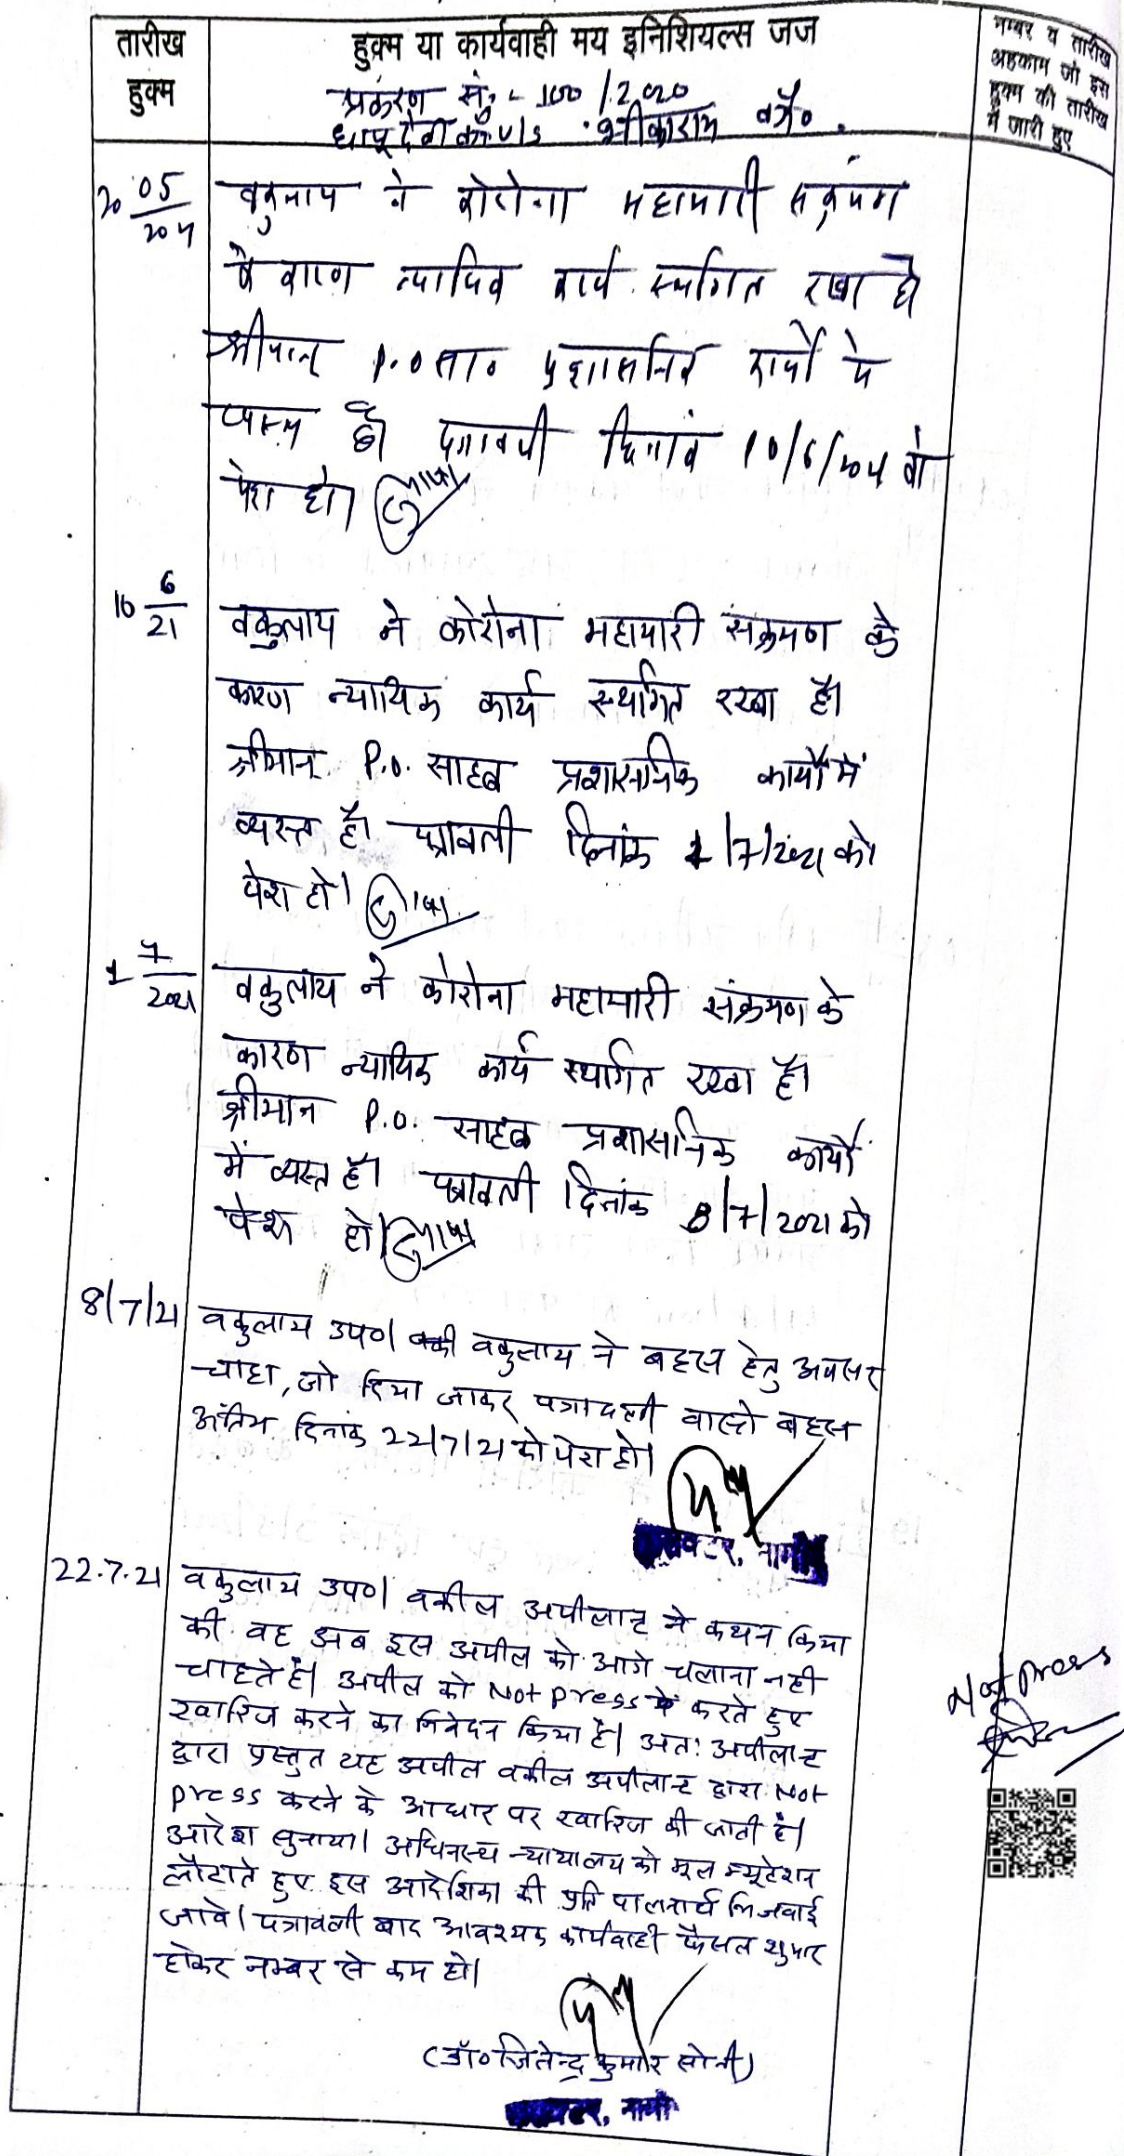 तारीख
हुक्म
हुक्म या कार्यवाही मय इनिशियल्स जज
प्रकरण सं. - 100/2020
धापू देवी v/s
नम्बर व तारीख
अहकाम जो इस
हुक्म की तारीख
में जारी हुए
20 05/2021
वकुलाय ने कोरोना महामारी संक्रमण
के कारण न्यायिक कार्य स्थगित रखा है
श्रीमान् P.O सा० प्रशासनिक कार्यो मे
व्यस्त है। पत्रावली दिनांक 10/6/2021 को
पेश हो।
10 6/21
वकुलाय ने कोरोना महामारी संक्रमण के
कारण न्यायिक कार्य स्थगित रखा है।
श्रीमान् P.O. साहब प्रशासनिक कार्यों में
व्यस्त है। पत्रावली दिनांक 1/7/2021 को
पेश हो।
1 7/2021
वकुलाय ने कोरोना महामारी संक्रमण के
कारण न्यायिक कार्य स्थगित रखा है।
श्रीमान P.O. साहब प्रशासनिक कार्यों
में व्यस्त है। पत्रावली दिनांक 8/7/2021 को
पेश हो।
8/7/21
वकुलाय उप०। वकुलाय ने बहस हेतु अवसर
चाहा, जो दिया जाकर पत्रावली वास्ते बहस
अंतिम दिनांक 22/7/21 को पेश हो।
22.7.21
वकुलाय उप०। वकील अपीलान्ट ने कथन किया
की वह अब इस अपील को आगे चलाना नही
चाहते है। अपील को Not press करते हुए
खारिज करने का निवेदन किया है। अतः अपीलान्ट
द्वारा प्रस्तुत यह अपील वकील अपीलान्ट द्वारा Not
press करने के आधार पर खारिज की जाती है।
आदेश सुनाया। अधिनस्थ न्यायालय को मूल म्यूटेशन
लौटाते हुए इस आदेशिका की प्रति पालनार्थ भिजवाई
जावे। पत्रावली बाद आवश्यक कार्यवाही फैसल शुमार
होकर नम्बर से कम हो।
Not press
(डॉ० जितेन्द्र कुमार सोनी)